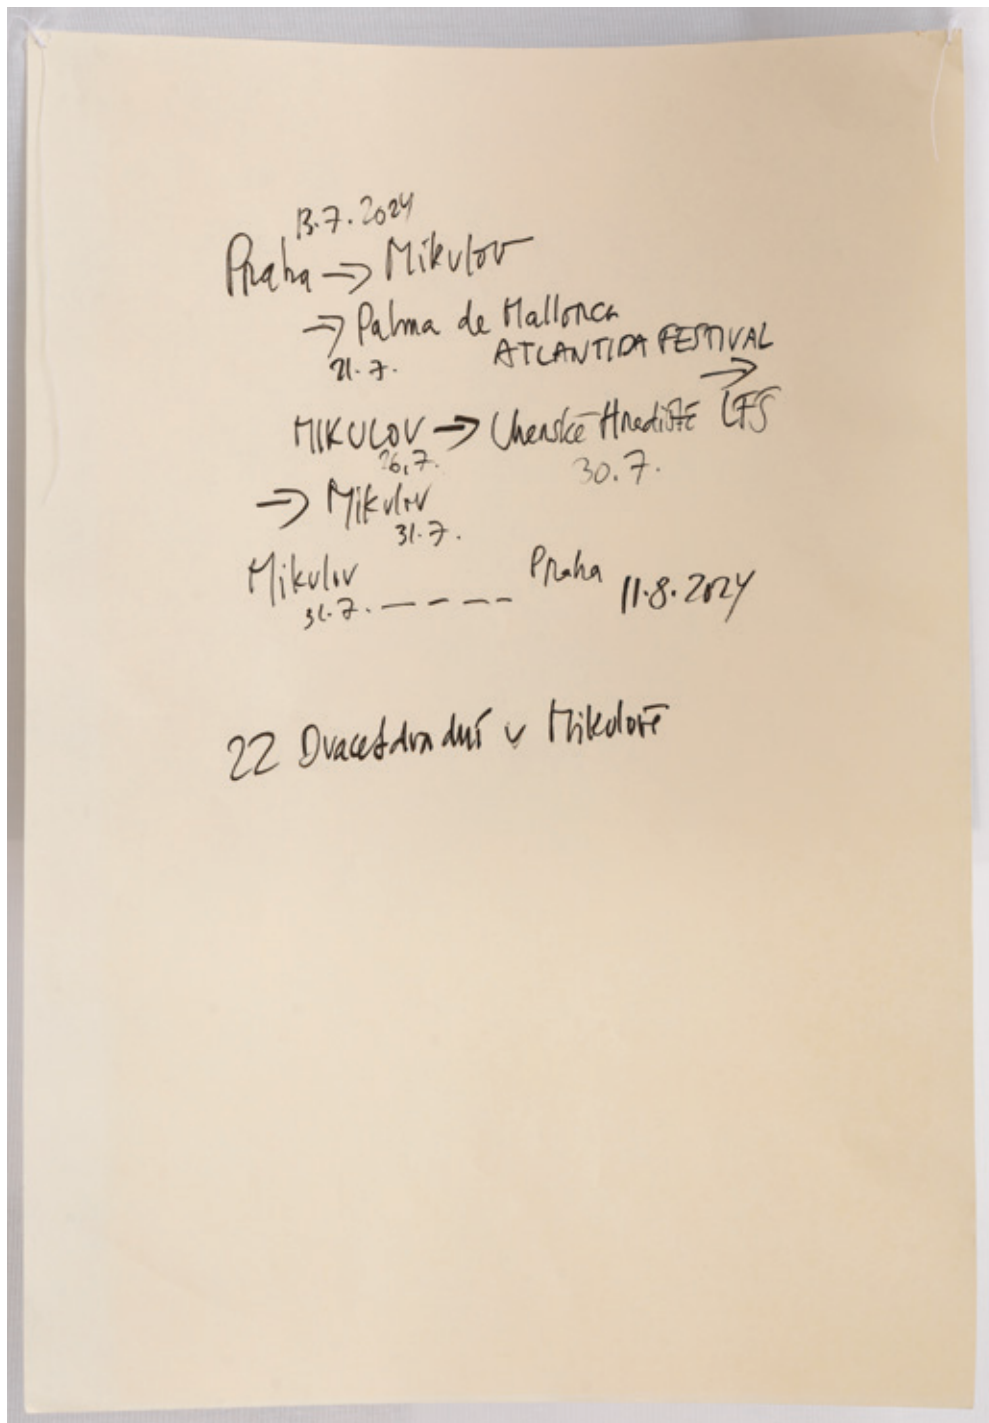 13.7.2024
Praha → Mikulov
→ Palma de Mallorca
ATLANTIDA FESTIVAL
21.7. →
MIKULOV → Uherské Hradiště LFŠ
26.7. 30.7.
→ Mikulov
31.7.
Mikulov Praha 11.8.2024
31.7. – – – –
22 Dvacetdva dní v Mikulově